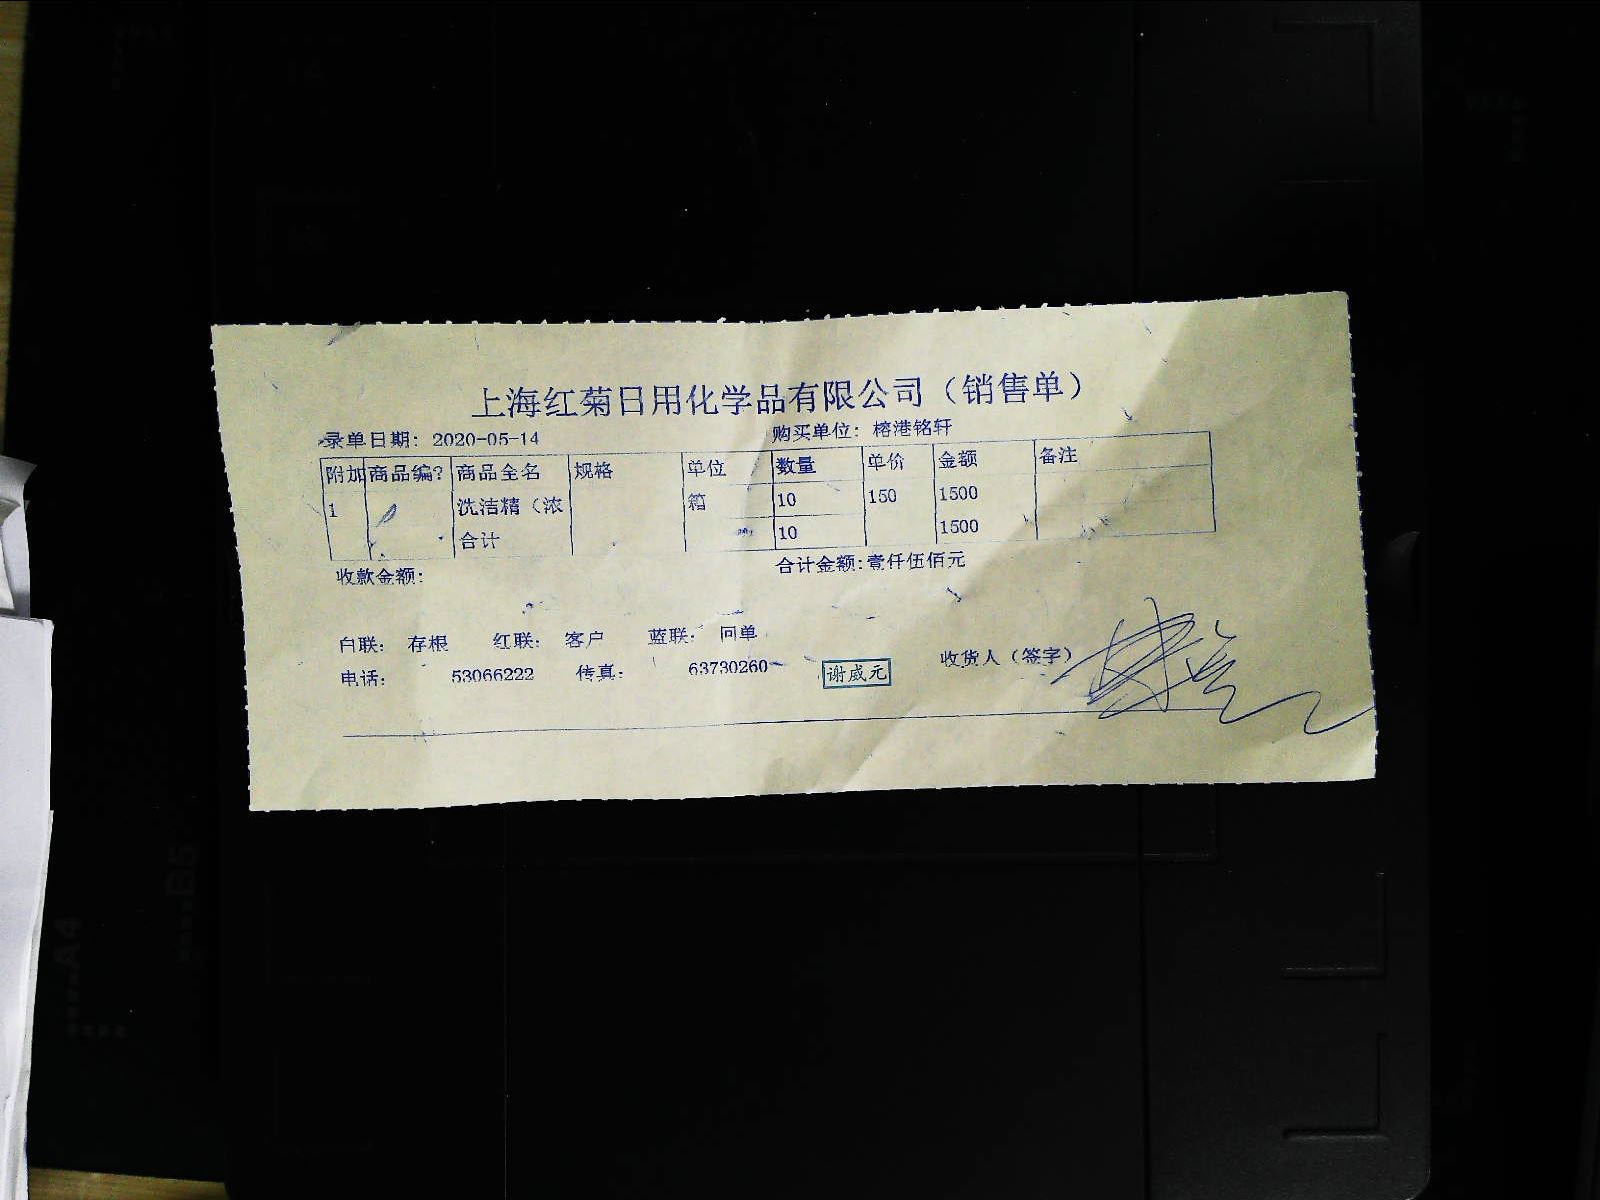 上海红菊日用化学品有限公司（销售单）
录单日期: 2020-05-14 购买单位: 榕港铭轩
附加 商品编? 商品全名 规格 单位 数量 单价 金额 备注
1 洗洁精（浓 箱 10 150 1500
合计 10 1500
收款金额: 合计金额:壹仟伍佰元
白联: 存根 红联: 客户 蓝联: 回单
电话: 53066222 传真: 63730260 谢威元 收货人（签字）
A4
B5